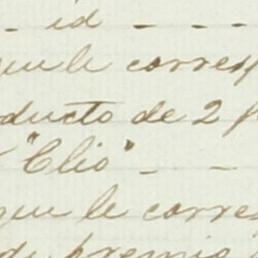 - id - - - -
que le corresp
ducto de 2 f
"Clio" - -
que le corres
de premio